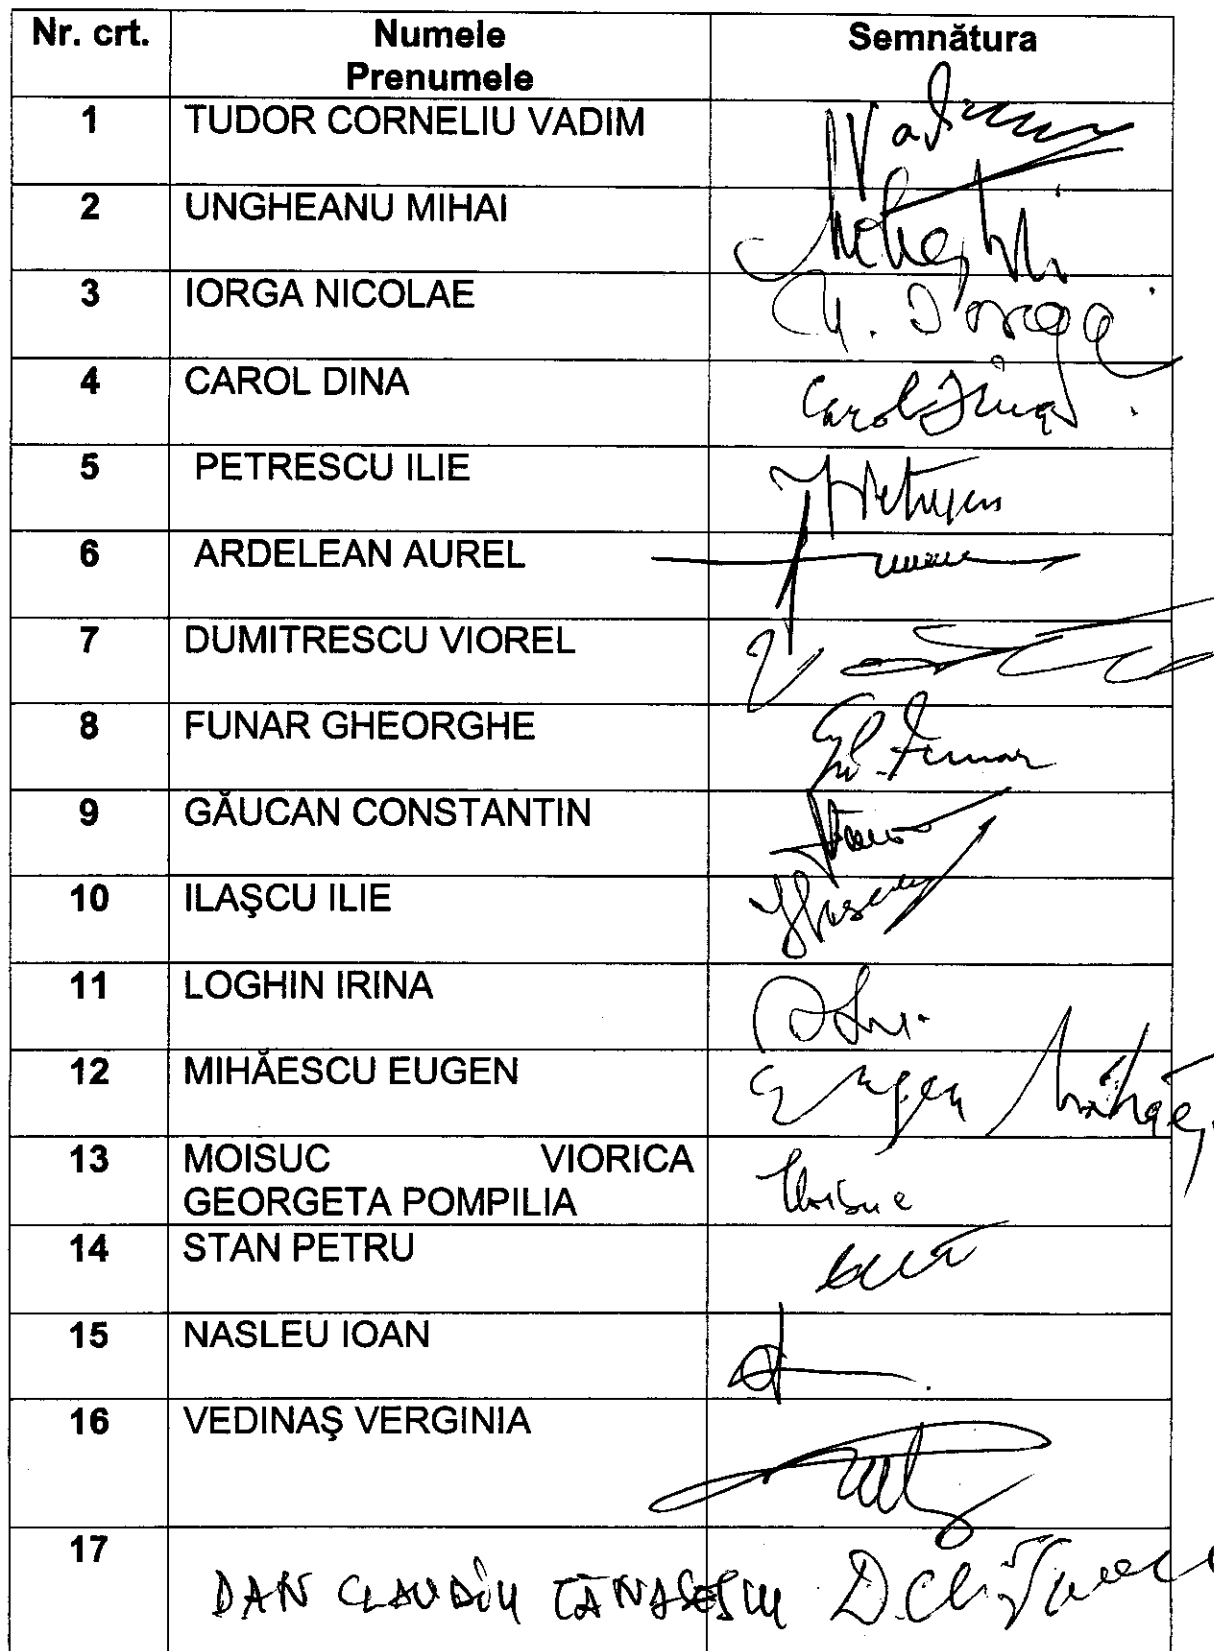 Nr. crt. Numele Semnătura
Prenumele
1 TUDOR CORNELIU VADIM Vadim
2 UNGHEANU MIHAI
3 IORGA NICOLAE N. Iorga
4 CAROL DINA Carol Dina
5 PETRESCU ILIE
6 ARDELEAN AUREL
7 DUMITRESCU VIOREL
8 FUNAR GHEORGHE Gh. Funar
9 GĂUCAN CONSTANTIN
10 ILAŞCU ILIE
11 LOGHIN IRINA
12 MIHĂESCU EUGEN Eugen
13 MOISUC VIORICA Moisuc
GEORGETA POMPILIA
14 STAN PETRU
15 NASLEU IOAN
16 VEDINAŞ VERGINIA
17
DAN CLAUDIU TĂNĂSESCU